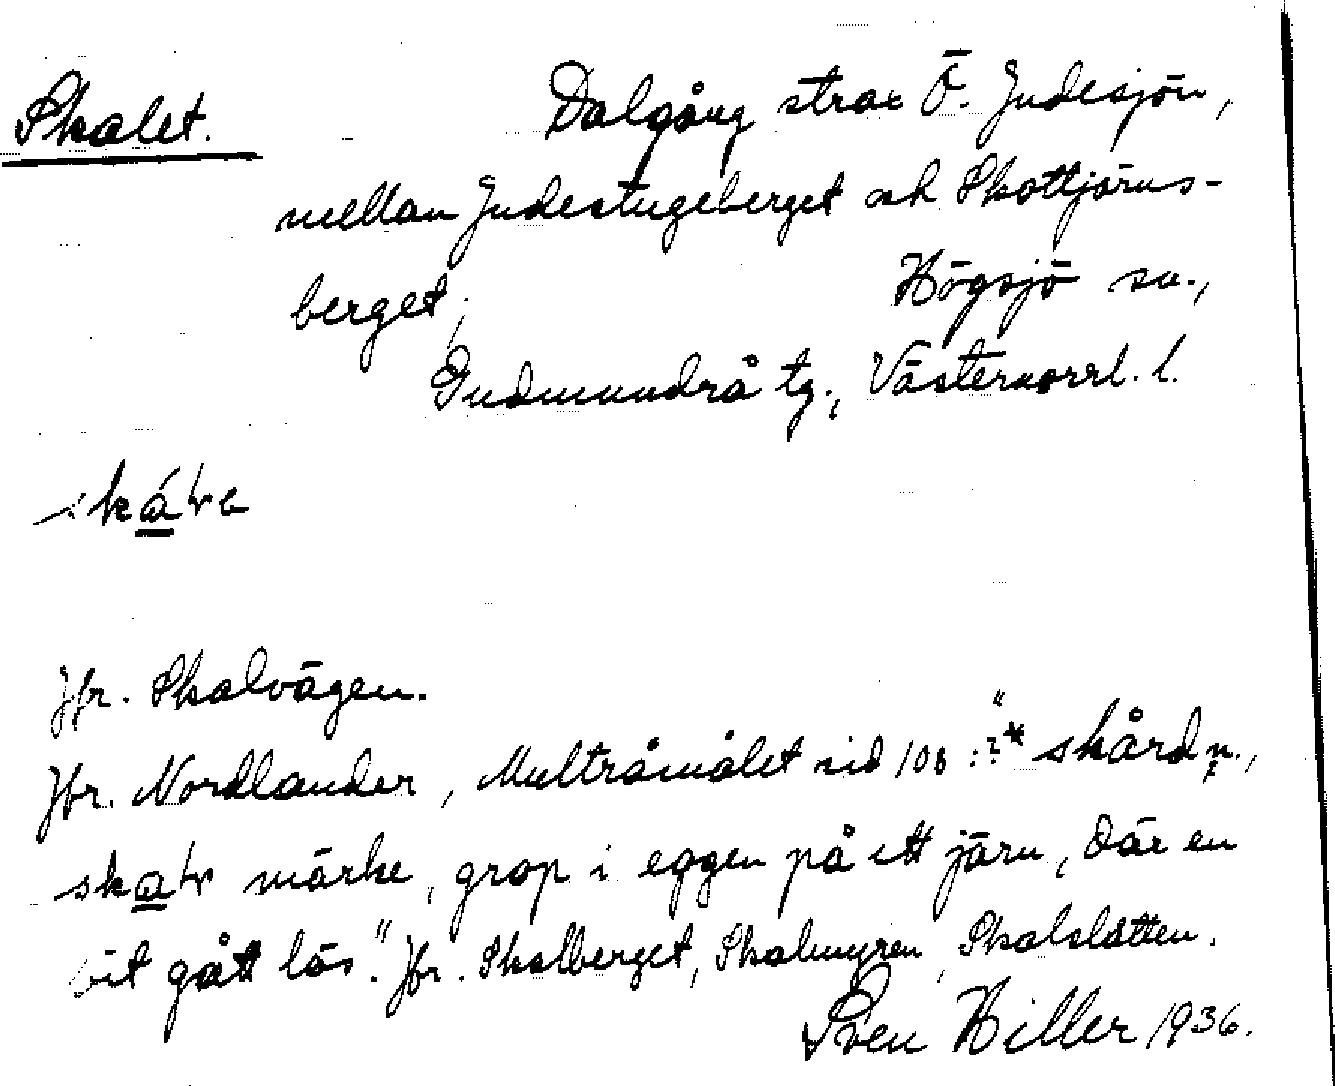 Skalet.
Dalgång strax Ö. Judesjön,
mellan Judestugeberget och Skottjärns-
berget,
Högsjö sn.,
Gudmundrå tg., Västernorrl. l.
Jfr. Skalvägen.
Jfr. Nordlander, Multråmålet sid 108 : "?* skård n.,
märke, grop i eggen på ett järn, där en
bit gått lös". Jfr. Skalberget, Skalmyren, Skalslåtten.
Sven Hiller 1936.